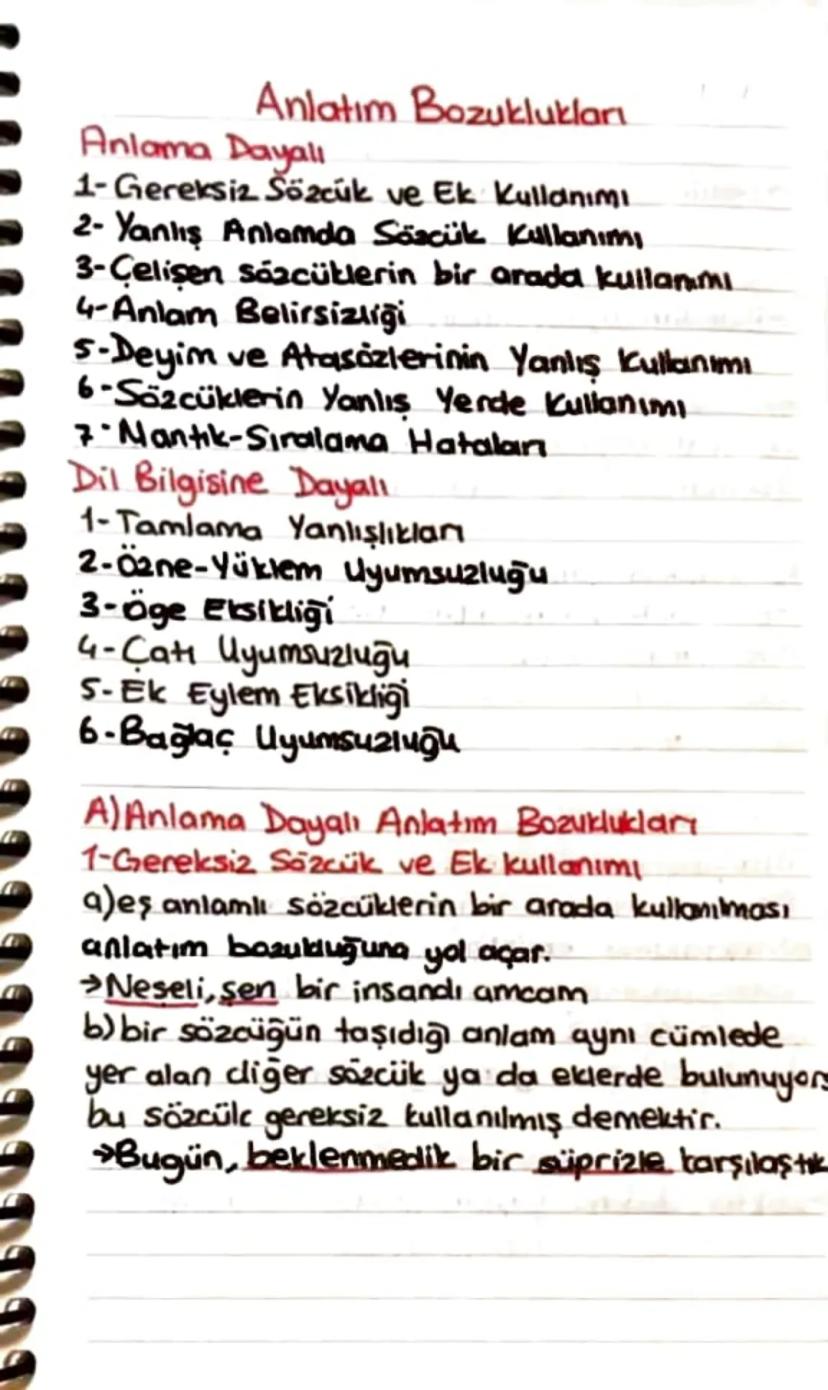 Anlatım Bozuklukları
Anlama Dayalı
1-Gereksiz Sözcük ve Ek Kullanımı
2- Yanlış Anlamda Sözcük Kullanımı
3-Çelişen sözcüklerin bir arada kullanımı
4-Anlam Belirsizliği
5-Deyim ve Atasözlerinin Yanlış Kullanımı
6-Sözcüklerin Yanlış Yerde Kullanımı
7-Mantık-Sıralama Hataları
Dil Bilgisine Dayalı
1-Tamlama Yanlışlıkları
2-Özne-Yüklem Uyumsuzluğu
3-Öge Eksikliği
4-Çatı Uyumsuzluğu
5-Ek Eylem Eksikliği
6-Bağlaç Uyumsuzluğu
A)Anlama Dayalı Anlatım Bozuklukları
1-Gereksiz Sözcük ve Ek kullanımı
a)eş anlamlı sözcüklerin bir arada kullanılması
anlatım bozukluğuna yol açar.
→Neşeli, şen bir insandı amcam
b)bir sözcüğün taşıdığı anlam aynı cümlede
yer alan diğer sözcük ya da eklerde bulunuyors
bu sözcük gereksiz kullanılmış demektir.
→Bugün, beklenmedik bir süprizle karşılaştık